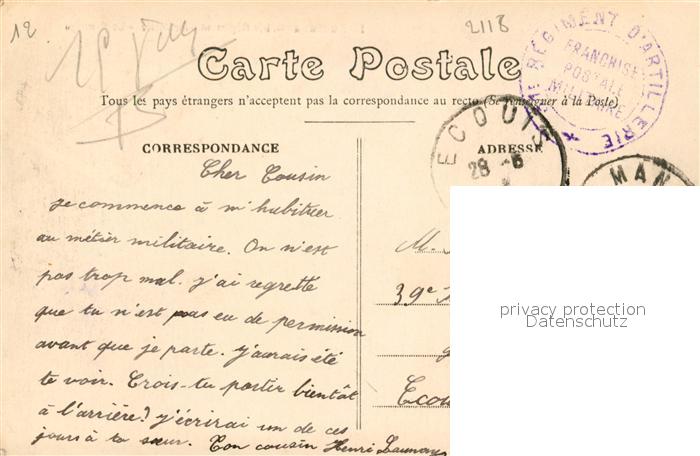 12
2118
Carte Postale
RÉGIMENT D'ARTILLERIE
FRANCHISE
POSTALE
MILITAIRE
Tous les pays étrangers n'acceptent pas la correspondance au recto (Se renseigner à la Poste)
ECOUIS
28 -6
MAN
CORRESPONDANCE
ADRESSE
Cher Cousin
je commence à m'habituer
au métier militaire. On n'est
pas trop mal. j'ai regretté
que tu n'est pas eu de permission
avant que je parte. j'aurais été
te voir. Crois-tu rester bientôt
à l'arrière? j'écrirai un de ces
jours à ta sœur. Ton cousin Henri Launay
M.
39e
Ecou
privacy protection
Datenschutz